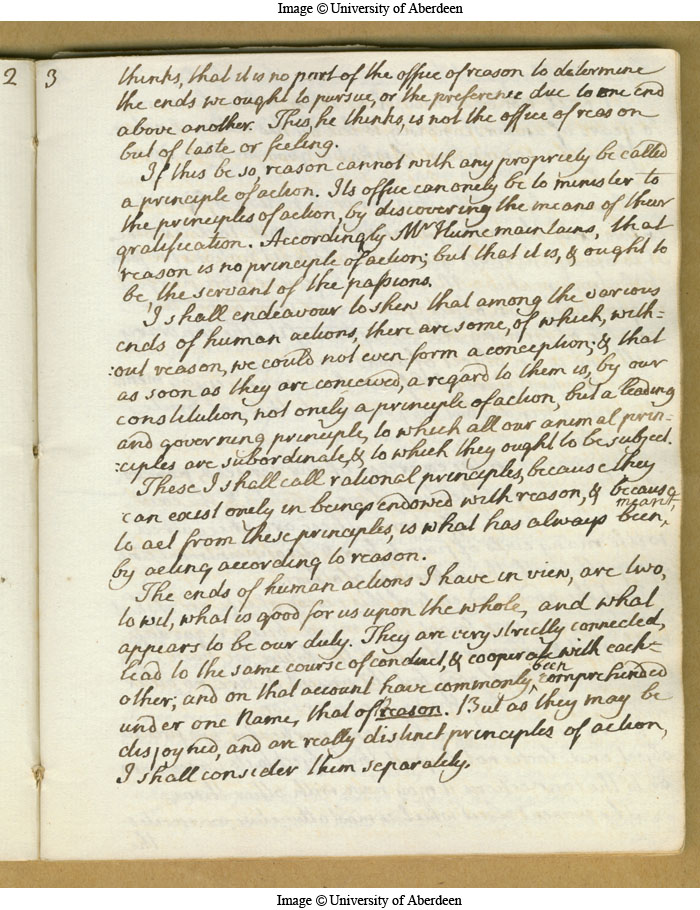 Image © University of Aberdeen
2 3
thinks, that it is no part of the office of reason to determine
the ends we ought to pursue, or the preference due to one end
above another. This, he thinks, is not the office of reason
but of taste or feeling.
If this be so, reason cannot with any propriety be called
a principle of action. Its office can onely be to minister to
the principles of action, by discovering the means of their
gratification. Accordingly Mr Hume maintains, that
reason is no principle of action; but that it is, & ought to
be, the servant of the passions.
I shall endeavour to shew that among the various
ends of human actions, there are some, of which, with=
:out reason, we could not even form a conception; & that
as soon as they are conceived, a regard to them is, by our
constitution, not onely a principle of action, but a leading
and governing principle, to which all our animal prin=
:ciples are subordinate, & to which they ought to be subject.
These I shall call rational principles, because they
can exist onely in beings endowed with reason, & because
to act from these principles, is what has always been meant,
by acting according to reason.
The ends of human actions I have in view, are two,
to wit, what is good for us upon the whole, and what
appears to be our duty. They are very strictly connected,
lead to the same course of conduct, & cooperate with each=
other; and on that account have commonly been comprehended
under one Name, that of reason. But as they may be
disjoyned, and are really distinct principles of action,
I shall consider them separately.
Image © University of Aberdeen